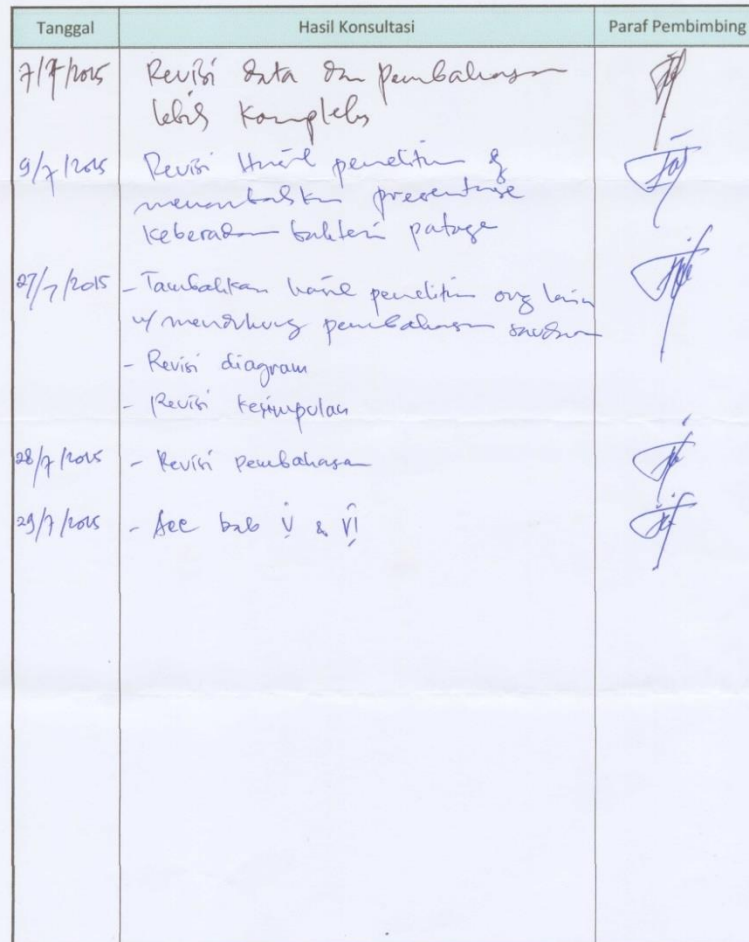 Tanggal Hasil Konsultasi Paraf Pembimbing
7/7/2015 Revisi data dan pembahasan
lebih kompleks
9/7/2015 Revisi Hasil penelitian &
menambahkan presentase
keberadaan bakteri patoge
27/7/2015 - Tambahkan hasil penelitian org lain
u/ mendukung pembahasan saudara
- Revisi diagram
- Revisi kesimpulan
28/7/2015 - Revisi pembahasan
29/7/2015 - Acc bab V & VI